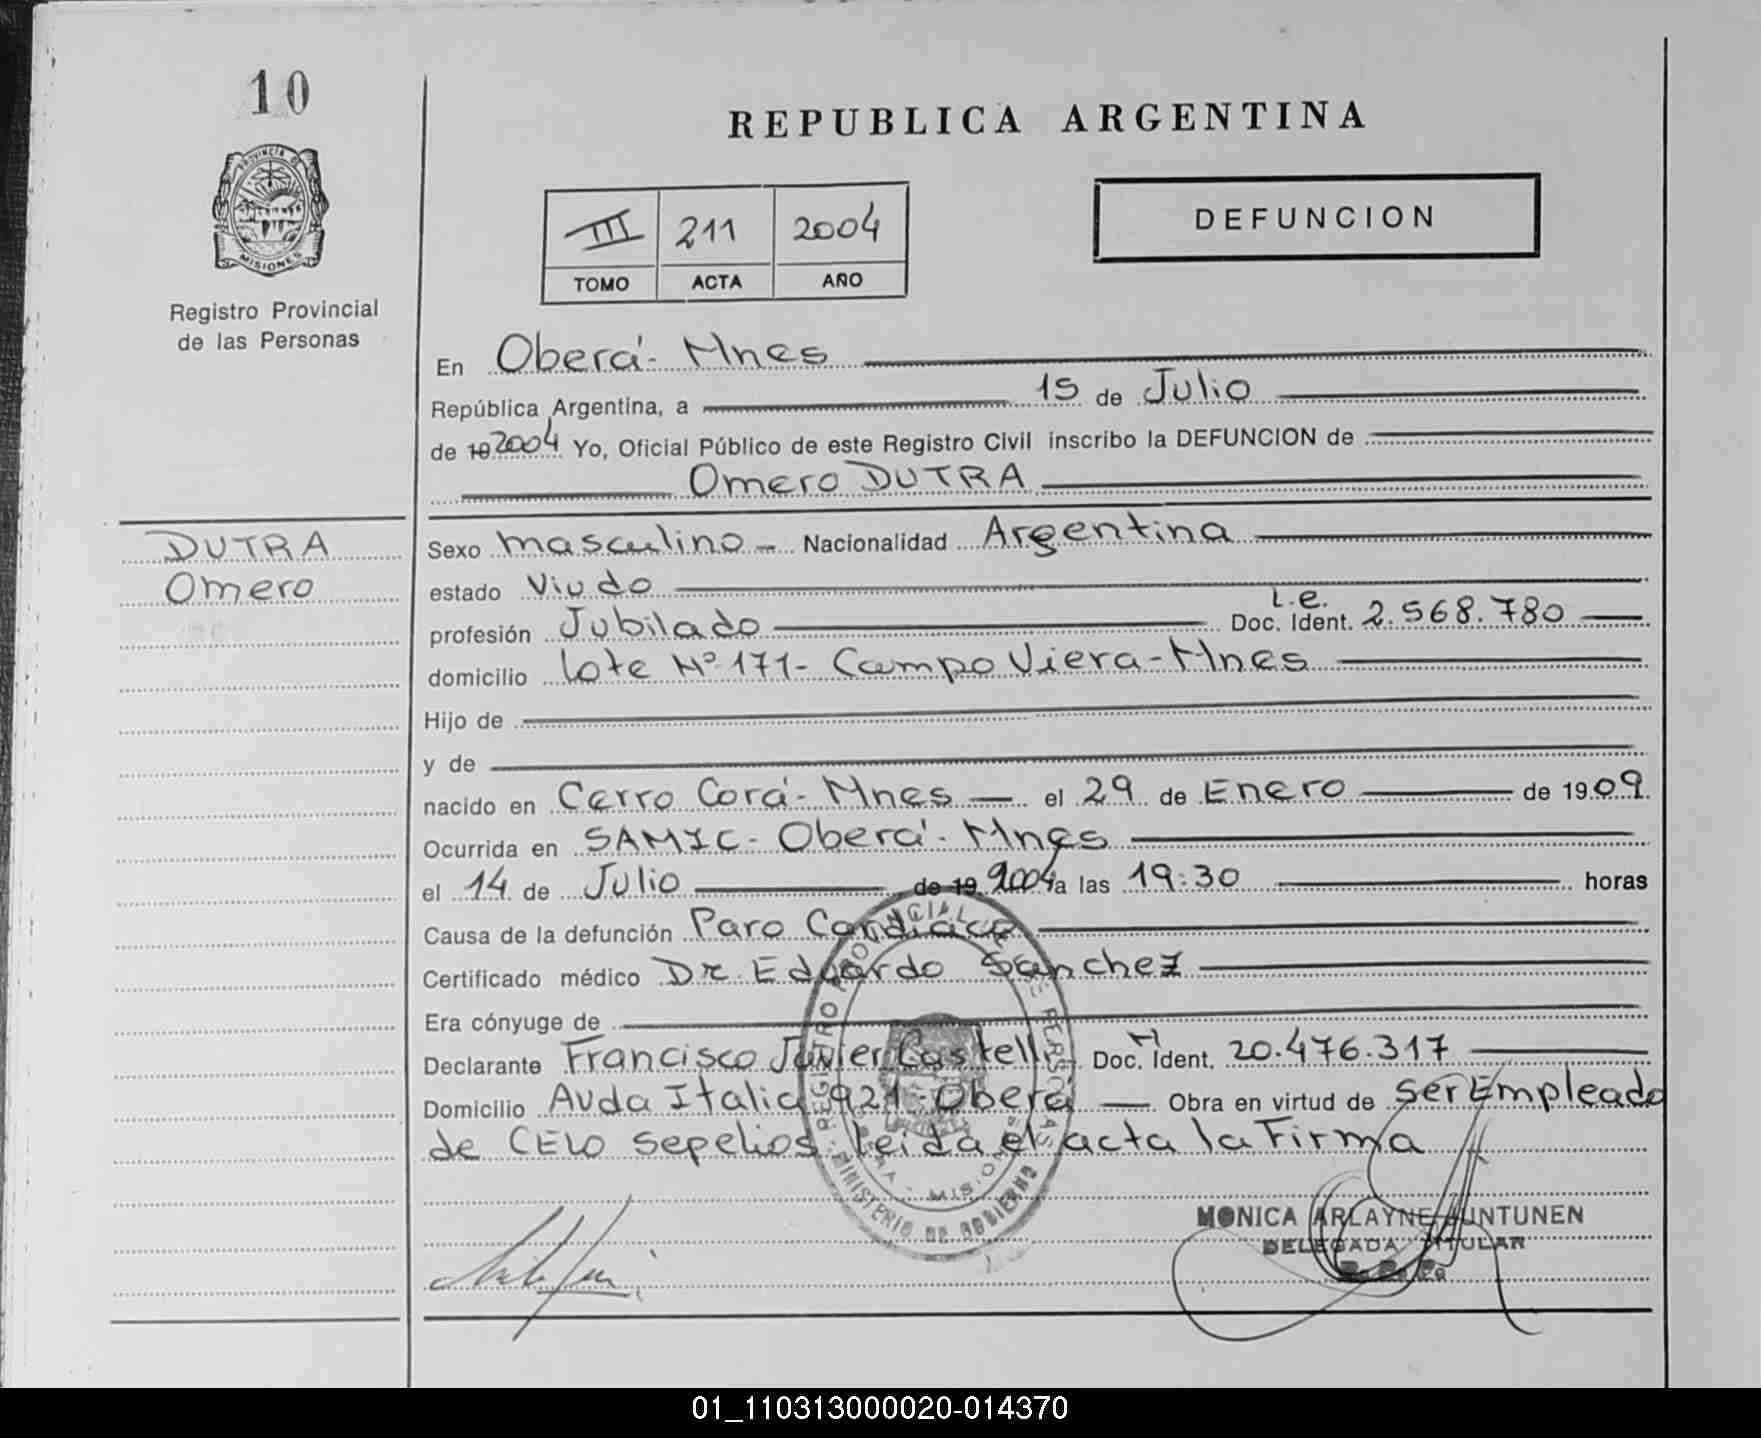 10
REPUBLICA ARGENTINA
PROVINCIA DE
MISIONES
Registro Provincial
de las Personas
III 211 2004
TOMO ACTA AÑO
DEFUNCION
En Oberá - Mnes
República Argentina, a 15 de Julio
de 19 2004 Yo, Oficial Público de este Registro Civil inscribo la DEFUNCION de
Omero DUTRA
DUTRA
Omero
Sexo masculino - Nacionalidad Argentina
estado Viudo
L.e.
profesión Jubilado Doc. Ident. 2.568.780
domicilio Lote Nº 171 - Campo Viera - Mnes
Hijo de
y de
nacido en Cerro Corá - Mnes el 29 de Enero de 1909
Ocurrida en SAMIC - Oberá - Mnes
el 14 de Julio de 19 2004 a las 19:30 horas
Causa de la defunción Paro Cardiaco
Certificado médico Dr. Eduardo Sanchez
Era cónyuge de
Declarante Francisco Javier Castelli Doc. Ident. 20.476.317
Domicilio Avda Italia 921 - Oberá Obra en virtud de ser Empleado
de CELO Sepelios leida el acta la Firma
REGISTRO PROVINCIAL DE LAS PERSONAS
MINISTERIO DE GOBIERNO
MONICA ARLAYNE
DELEGADA TITULAR
01_110313000020-014370